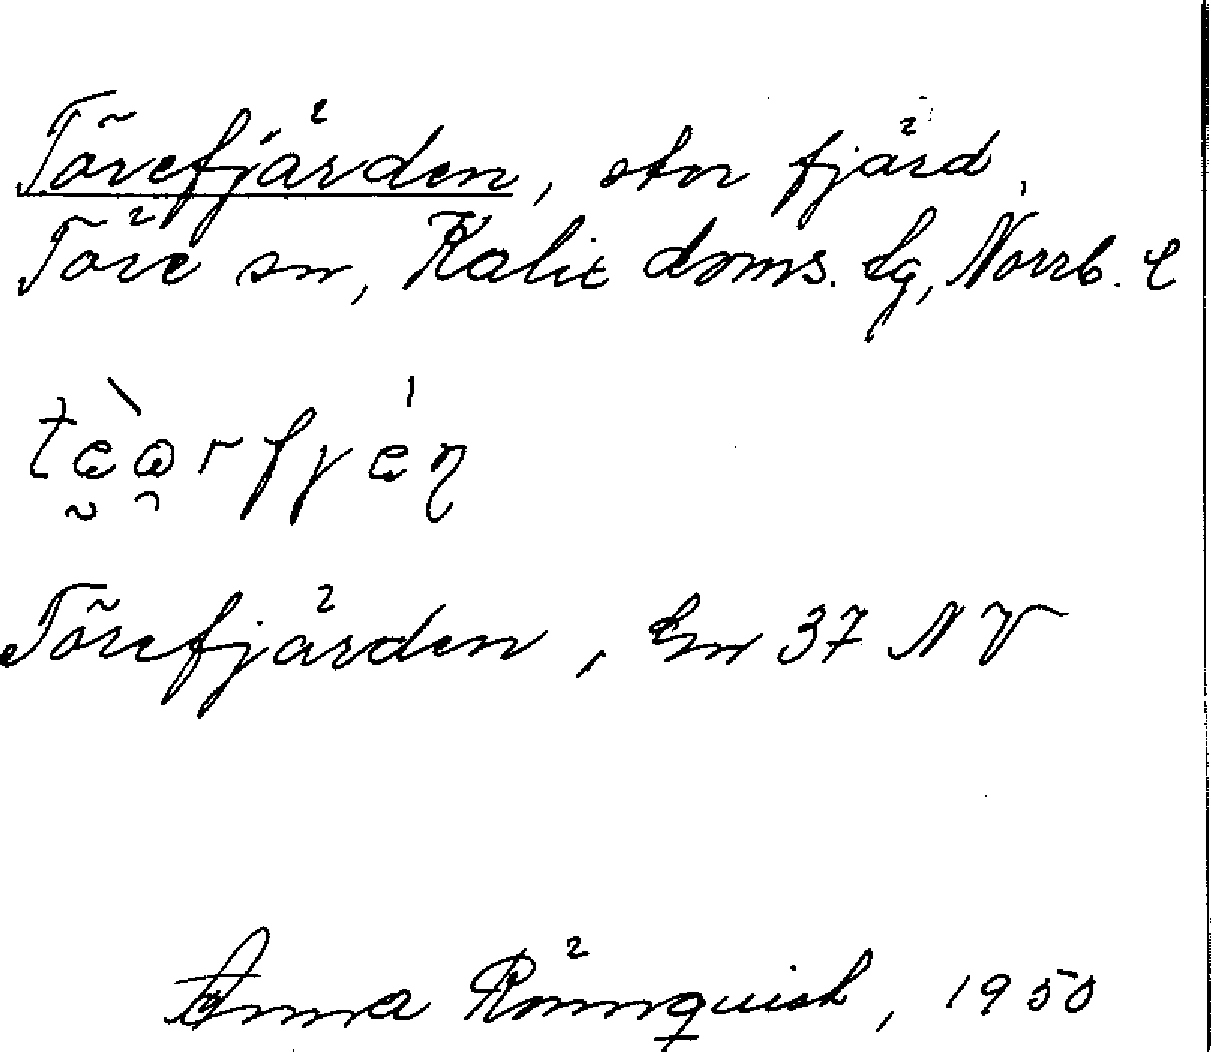 Törefjärden, stor fjärd,
Töre sn, Kalix doms. lg, Norrb. l
Törefjärden, En 37 NV
Anna Rönnquist, 1950